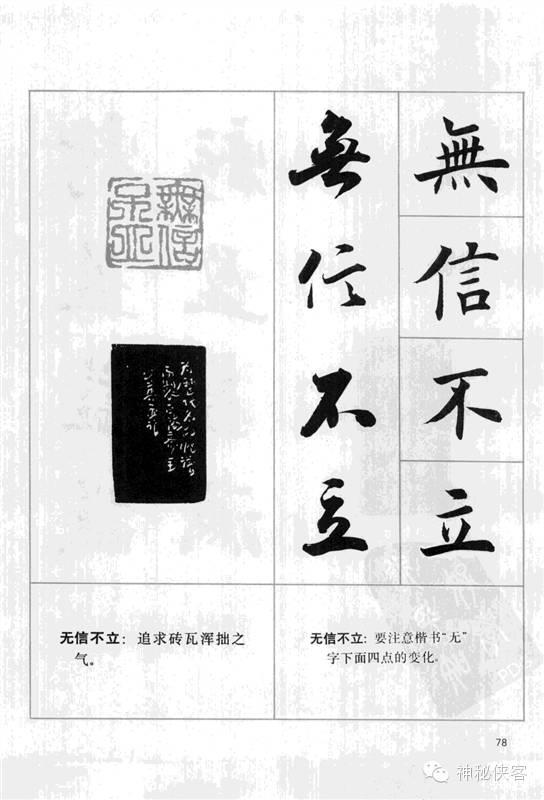 無信不立
無信不立
無信不立
无信不立：追求砖瓦浑拙之
气。
无信不立：要注意楷书“无”
字下面四点的变化。
78
神秘侠客